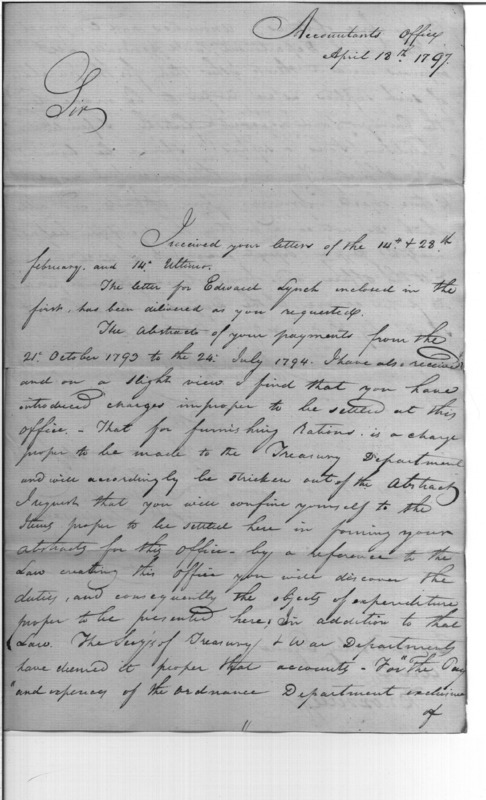 Accountants Office
April 18th. 1797.
Sir
I received your letters of the 14th. & 28th
february, and 14th. Ultimo.
The letter for Edward Lynch inclosed in the
first, has been delivered as you requested.
The Abstracts of your payments from the
21st. October 1793 to the 24th. July 1794. I have also received
and on a slight view I find that you have
introduced charges improper to be settled at this
office. - That for furnishing Rations. is a charge
proper to be made to the Treasury Department
and will accordingly be stricken out of the Abstract
I request that you will confine yourself to the
Items proper to be settled here in forming your
abstracts for this office - by a reference to the
Law creating this office you will discover the
duties, and consequently the objects of expenditure
proper to be presented here, In addition to that
Law. The Secys of Treasury & War Departments
have deemed it proper that accounts - For "The Pay
"and expences of the Ordnance Department exclusive
of